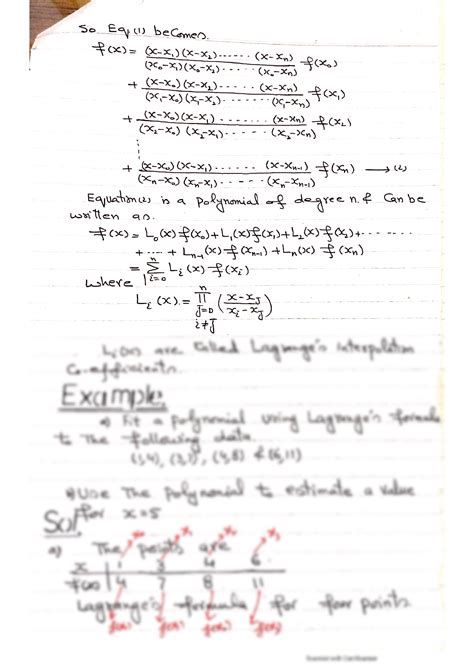 So Eq (1) becomes.
f(x) = (x-x₁)(x-x₂)......(x-xₙ) / (x₀-x₁)(x₀-x₂).....(x₀-xₙ) f(x₀)
+ (x-x₀)(x-x₂)......(x-xₙ) / (x₁-x₀)(x₁-x₂)......(x₁-xₙ) f(x₁)
+ (x-x₀)(x-x₁)......(x-xₙ) / (x₂-x₀)(x₂-x₁).....(x₂-xₙ) f(x₂)
+ (x-x₀)(x-x₁)......(x-xₙ₋₁) / (xₙ-x₀)(xₙ-x₁)......(xₙ-xₙ₋₁) f(xₙ) →
Equation is a polynomial of degree n. & Can be
written as.
f(x) = L₀(x) f(x₀) + L₁(x) f(x₁) + L₂(x) f(x₂) + ......
+ ... + Lₙ₋₁(x) f(xₙ₋₁) + Lₙ(x) f(xₙ)
= Σⁿᵢ₌₀ Lᵢ(x) f(xᵢ)
where
Lᵢ(x) = ∏ⁿ J=0 i≠J ((x-xJ) / (xᵢ-xJ))
are called Lagrange's Interpolation
Co-efficients.
Example.
a) Fit a polynomial using Lagrange's formula
to the following data.
(1,4), (3,7), (4,8) & (6,11)
b) Use The polynomial to estimate a value
for x=5
Sol.
a) The points are
x₀ x₁ x₂ x₃
x 1 3 4 6
f(x) 4 7 8 11
Lagrange's formula for four points.
f(x₀) f(x₁) f(x₂) f(x₃)